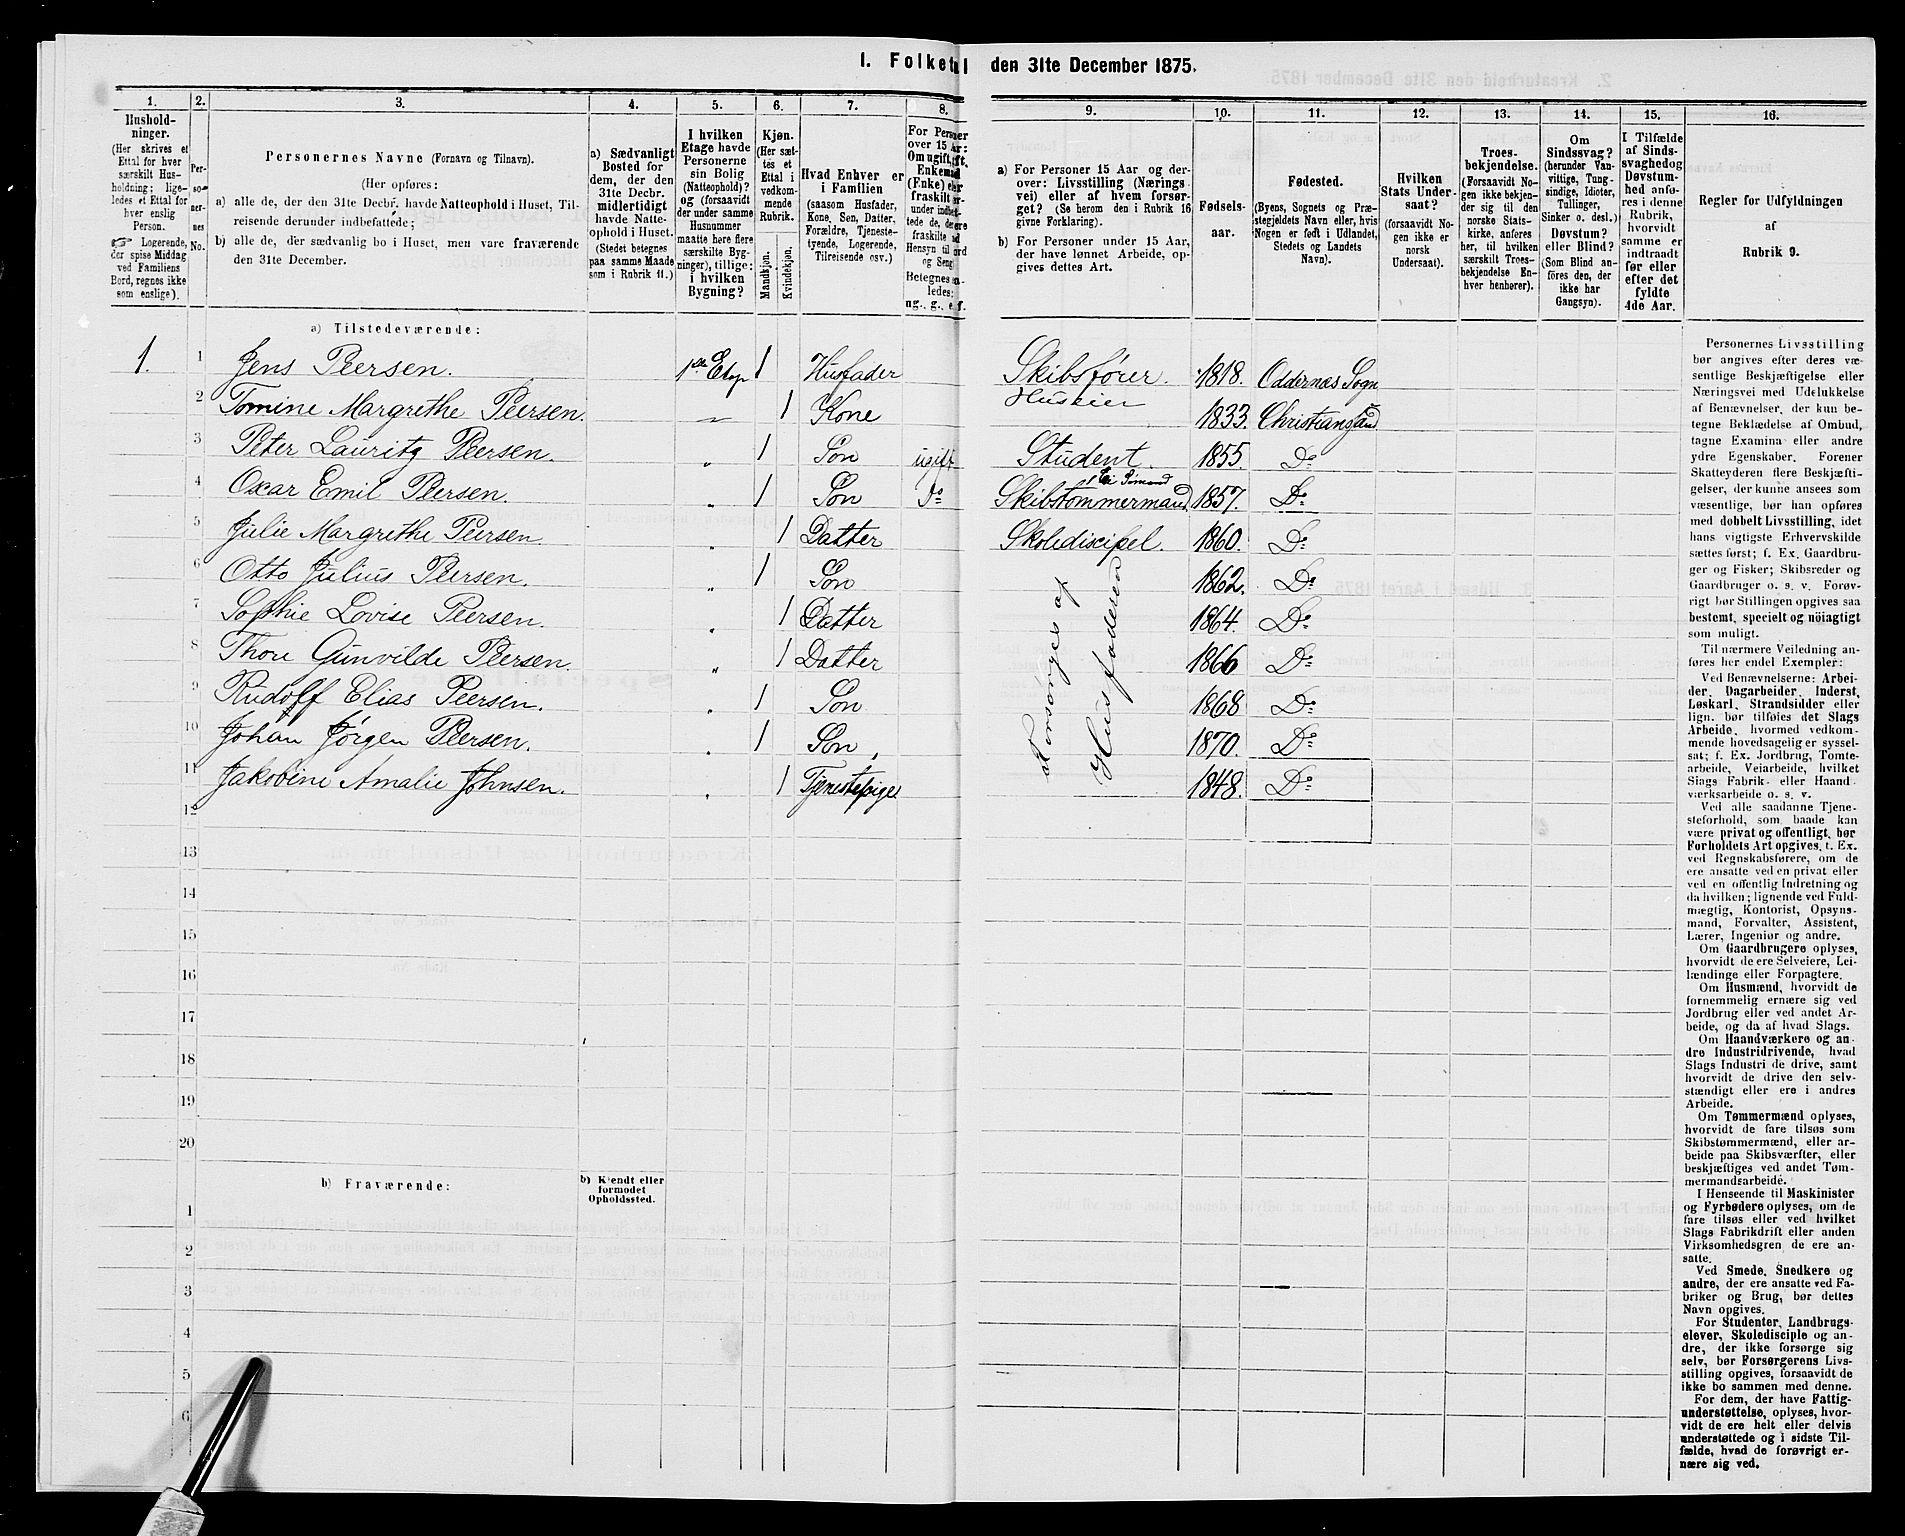 1. Folketal den 31te December 1875.
1. 2. 3. 4. 5. 6. 7. 8. 9. 10. 11. 12. 13. 14. 15. 16.
Hushold-
ninger.
(Her skrives et
Ettal for hver
særskilt Hus-
holdning; lige-
ledes et Ettal for
hver enslig
Person.
Logerende,
der spise Middag
ved Familiens
Bord, regnes ikke
som enslige).
Per-
so-
ner-
nes
No.
Personernes Navne (Fornavn og Tilnavn).
(Her opføres:
a) alle de, der den 31te Decbr. havde Natteophold i Huset, Til-
reisende derunder indbefattede;
b) alle de, der sædvanlig bo i Huset, men vare fraværende
den 31te December.
a) Sædvanligt
Bosted for
dem, der den
31te Decbr.
midlertidigt
havde Natte-
ophold i Huset.
(Stedet betegnes
paa samme Maade
som i Rubrik 11.)
I hvilken
Etage havde
Personerne
sin Bolig
(Natteophold)?
og (forsaavidt
der under samme
Husnummer
maatte høre flere
særskilte Byg-
ninger), tillige:
i hvilken
Bygning?
Kjøn.
(Her sæt-
tes et
Ettal i
vedkom-
mende
Rubrik.
Mandkjøn.
Kvindekjøn.
Hvad Enhver er
i Familien
(saasom Husfader,
Kone, Søn, Datter,
Forældre, Tjeneste-
tyende, Logerende,
Tilreisende osv.)
For Personer
over 15 Aar:
Om ugift, gift,
Enkemand
(Enke) eller
fraskilt
a) For Personer 15 Aar og der-
over: Livsstilling (Nærings-
vei) eller af hvem forsør-
get? (Se herom den i Rubrik 16
givne Forklaring).
b) For Personer under 15 Aar,
der have lønnet Arbeide, op-
gives dettes Art.
Fødsels-
aar.
Fødested.
(Byens, Sognets og Præ-
stegjeldets Navn eller, hvis
Nogen er født i Udlandet,
Stedets og Landets
Navn).
Hvilken
Stats Under-
saat?
(forsaavidt No-
gen ikke er
norsk
Undersaat).
Troes-
bekjendelse.
(Forsaavidt No-
gen ikke bekjen-
der sig til den
norske Stats-
kirke, anføres
her, til hvilken
særskilt Troes-
bekjendelse En-
hver henhører).
Om
Sindssvag?
(herunder Van-
vittige, Tung-
sindige, Idioter,
Tullinger,
Sinker o. desl.)
Døvstum?
eller Blind?
(Som Blind an-
føres den, der
ikke har
Gangsyn).
I Tilfælde
af Sinds-
svaghed og
Døvstum-
hed anfø-
res i denne
Rubrik,
hvorvidt
samme er
indtraadt
før eller
efter det
fyldte
4de Aar.
Regler for Udfyldningen
af
Rubrik 9.
a) Tilstedeværende:
1. 1 Jens Peersen. 1ste Etage 1 Husfader Skibsfører. Huseier 1818. Oddernæs Sogn
2 Tomine Margrethe Peersen. " 1 Kone 1833. Christiansand
3 Peter Lauritz Peersen. " 1 Søn ugift Student. 1855. Do
4 Oscar Emil Peersen. " 1 Søn Do Skibstømmermand 1857. Do
5 Julie Margrethe Peersen. " 1 Datter Skolediscipel. 1860. Do
6 Otto Julius Peersen. 1 Søn 1862. Do
7 Sophie Lovise Peersen. " 1 Datter 1864. Do
8 Thore Gunvilde Peersen. " 1 Datter 1866 Do
9 Rudolf Elias Peersen. " 1 Søn 1868 Do
10 Johan Jørgen Peersen. " 1 Søn 1870. Do
11 Jakobine Amalie Johnsen. " 1 Tjenestepige 1848. Do
forsørges af
Husfaderen
12
13
14
15
16
17
18
19
20
b) Fraværende:
b) Kjendt eller
formodet
Opholdssted.
1
2
3
4
5
6
Personernes Livsstilling
bør angives efter deres væ-
sentlige Beskjæftigelse eller
Næringsvei med Udelukkelse
af Benævnelser, der kun be-
tegne Beklædelse af Ombud,
tagne Examina eller andre
ydre Egenskaber. Forener
Skatteyderen flere Beskjæfti-
gelser, der kunne ansees som
væsentlige, bør han opføres
med dobbelt Livsstilling, idet
hans vigtigste Erhvervskilde
sættes først; f. Ex. Gaardbru-
ger og Fisker; Skibsreder og
Gaardbruger o. s. v. Forøv-
rigt bør Stillingen opgives saa
bestemt, specielt og nöiagtigt
som muligt.
Til nærmere Veiledning an-
føres her endel Exempler:
Ved Benævnelserne: Arbei-
der, Dagarbeider, Inderst,
Løskarl, Strandsidder eller
lign. bør tilføies det Slags
Arbeide, hvormed vedkom-
mende hovedsagelig er syssel-
sat; f. Ex. Jordbrug, Tomte-
arbeide, Veiarbeide, hvilket
Slags Fabrik- eller Haand-
værksarbeide o. s. v.
Ved alle saadanne Tjene-
steforhold, som baade kan
være privat og offentligt, bør
Forholdets Art opgives, t. Ex.
ved Regnskabsførere, om de
ere ansatte ved en privat eller
ved en offentlig Indretning og
da hvilken; lignende ved Fuld-
mægtig, Kontorist, Opsyns-
mand, Forvalter, Assistent,
Lærer, Ingeniør og andre.
Om Gaardbrugere oplyses,
hvorvidt de ere Selveiere, Lei-
lændinge eller Forpagtere.
Om Husmænd, hvorvidt de
fornemmelig ernære sig ved
Jordbrug eller ved andet Ar-
beide, og da af hvad Slags.
Om Haandværkere og an-
dre Industridrivende, hvad
Slags Industri de drive, samt
hvorvidt de drive den selv-
stændigt eller ere i andres
Arbeide.
Om Tømmermænd oplyses,
hvorvidt de fare tilsøs som
Skibstømmermænd, eller ar-
beide paa Skibsværfter, eller
beskjæftiges ved andet Tøm-
mermandsarbeide.
I Henseende til Maskinister
og Fyrbødere oplyses, om de
fare tilsøs eller ved hvilket
Slags Fabrikdrift eller anden
Virksomhedsgren de ere an-
satte.
Ved Smede, Snedkere og
andre, der ere ansatte ved Fa-
briker og Brug, bør dettes
Navn opgives.
For Studenter, Landbrugs-
elever, Skoledisciple og an-
dre, der ikke forsørge sig
selv, bør Forsørgerens Livs-
stilling opgives, forsaavidt de
ikke bo sammen med denne.
For dem, der have Fattig-
understøttelse, oplyses, hvor-
vidt de ere helt eller delvis
understøttede og i sidste Til-
fælde, hvad de forøvrigt er-
nære sig ved.